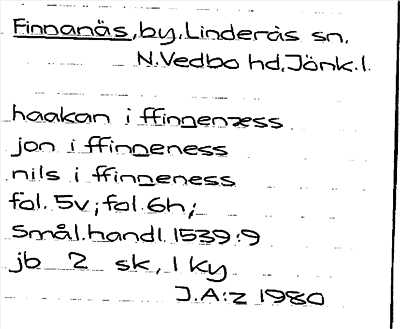 Finnanäs, by, Linderås sn,
N. Vedbo hd, Jönk. l.
haakan i ffinnenæss
jon i ffinneness
nils i ffinneness
fol. 5v; fol. 6h;
Smål. handl. 1539:9
jb 2 sk, 1 ky
J.A:z 1980